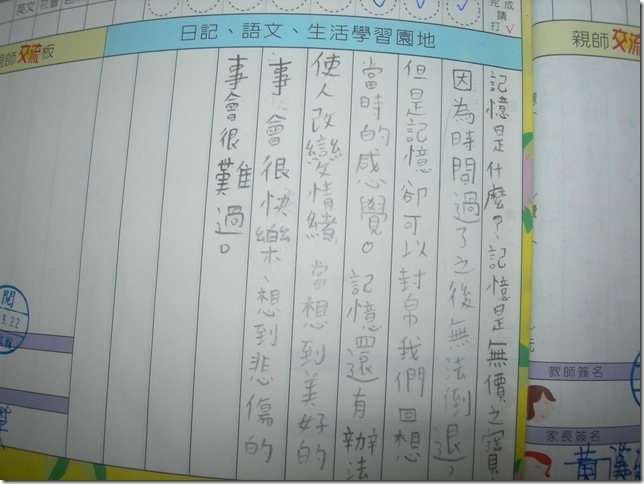 英文 社會
完成
請
打✓
日記、語文、生活學習園地
親師交流
記憶是什麼?記憶是無價之寶
因為時間過了之後無法倒退,
但是記憶卻可以幫我們回想
當時的感覺。記憶還有辦法
使人改變情緒 當想到美好的
事會很快樂、想到悲傷的
事會很難過。
師交流板
閱
9.22
教師簽名
家長簽名